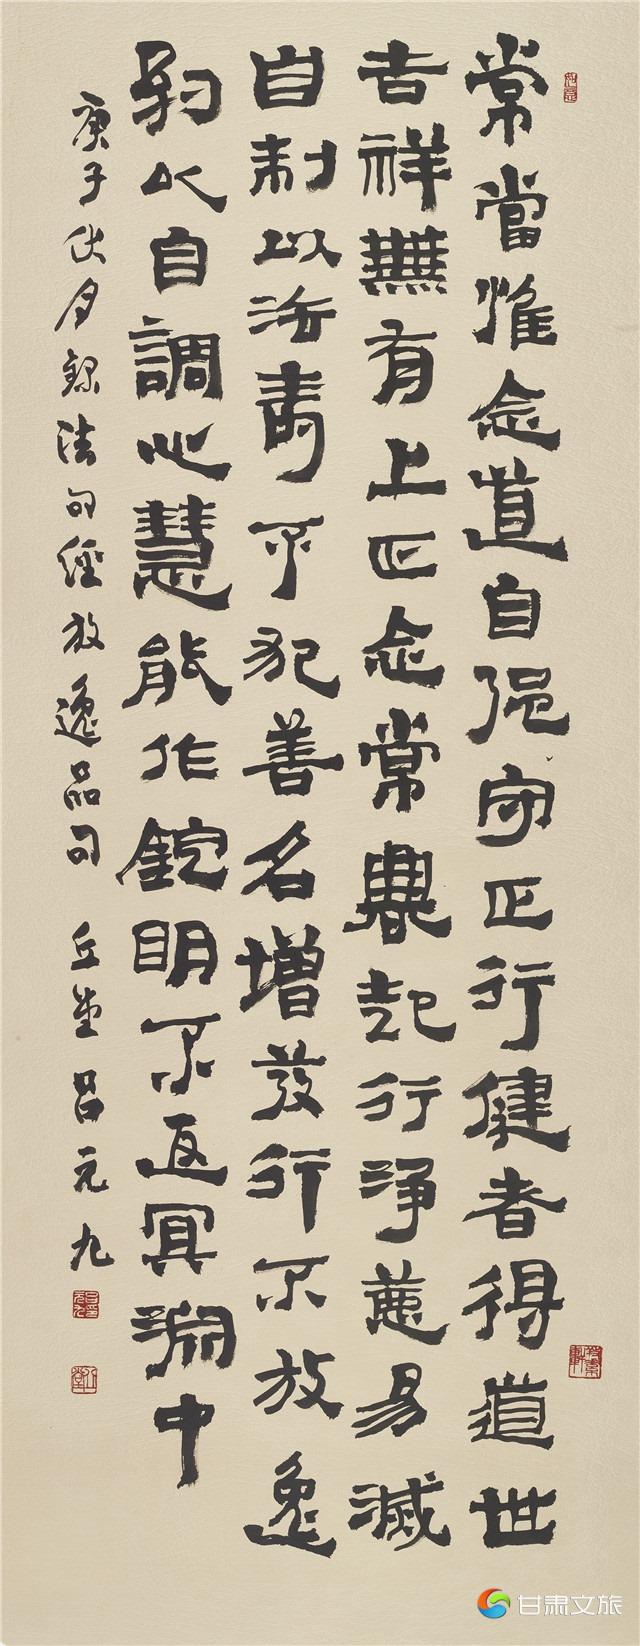 常當惟念道自強守正行健者得道世
吉祥無有上正念常興起行淨惡易滅
自制以法壽不犯善名增發行不放逸
約以自調心慧能作錠明不返冥淵中
庚子伏月録法句經放逸品句 丘堂吕元九
甘肃文旅